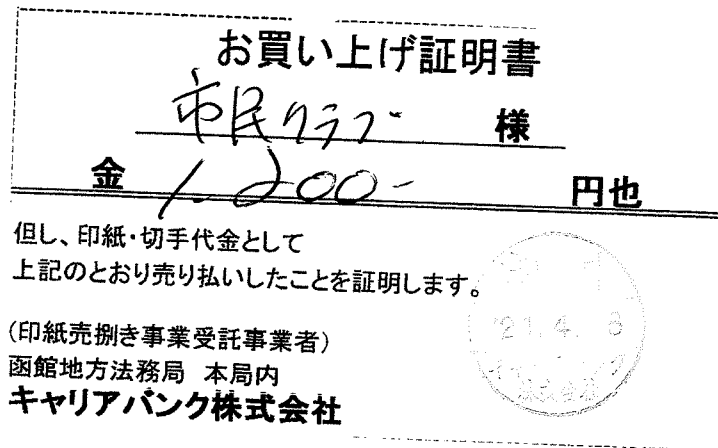 お買い上げ証明書
市民クラブ 様
金 1-200- 円也
但し、印紙・切手代金として
上記のとおり売り払いしたことを証明します。
'21.4.8
株式会社
(印紙売捌き事業受託事業者)
函館地方法務局 本局内
キャリアバンク株式会社